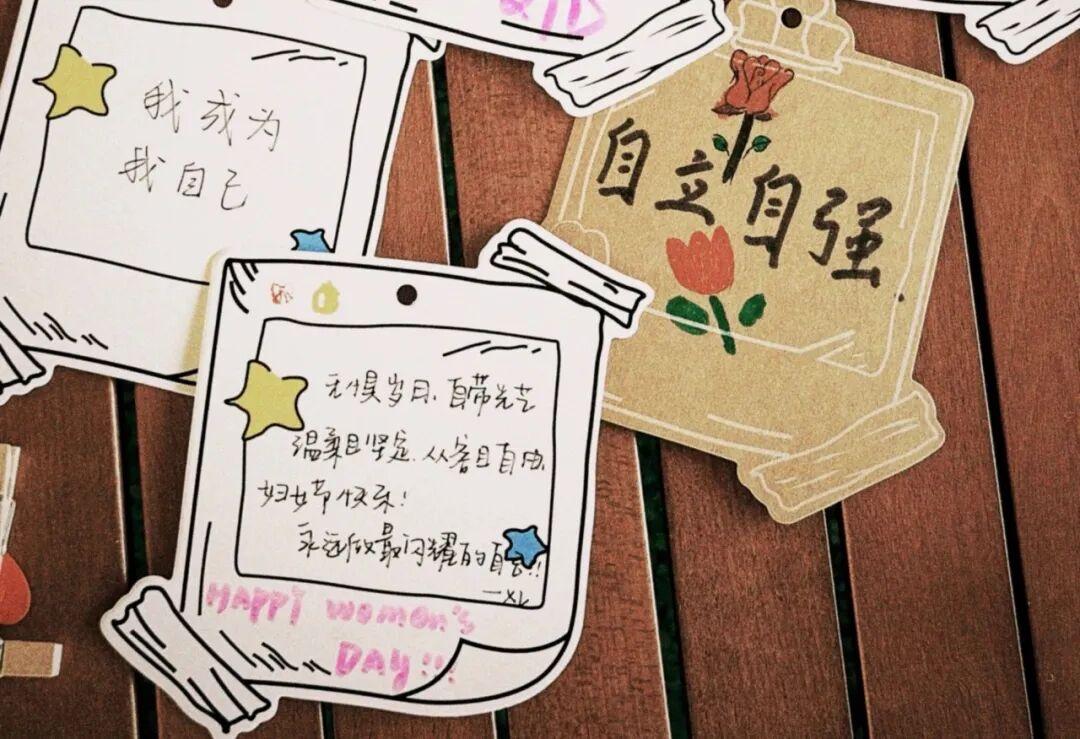 我成为
我自己
自立自强
无惧岁月,自带光芒
温柔且坚定,从容且自由,
妇女节快乐!
永远做最闪耀的自己!!
—XL
HAPPY women's
DAY!!!